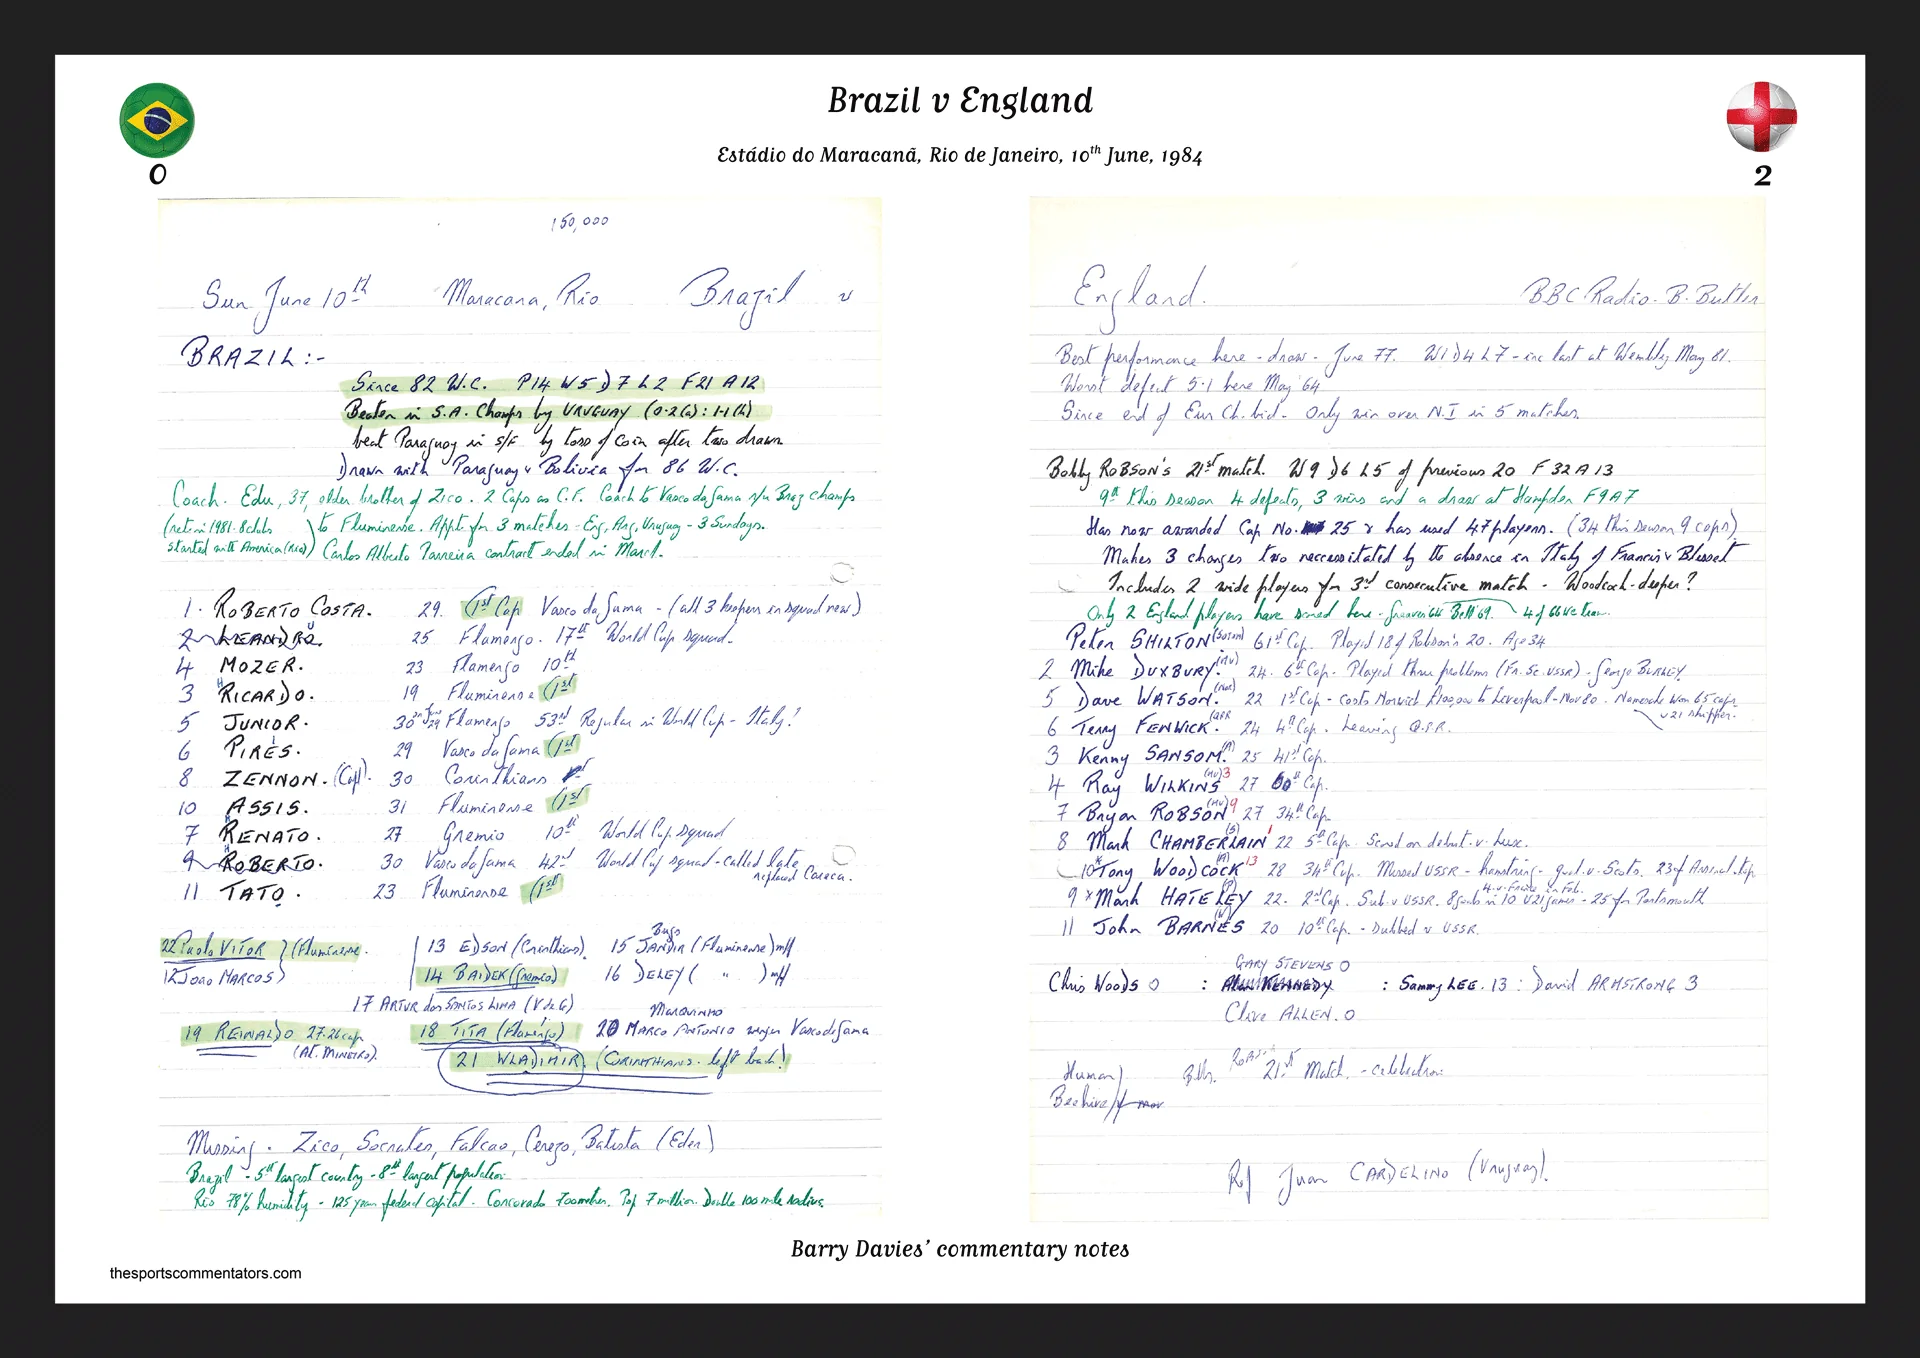 Brazil v England
Estádio do Maracanã, Rio de Janeiro, 10th June, 1984
0
2
150,000
Sun June 10th Maracana, Rio Brazil v
BRAZIL:-
Since 82 W.C. P14 W5 D7 L2 F21 A12
Beaten in S.A. Champs by URUGUAY (0-2(a): 1-1(h)
beat Paraguay in S/F by toss of coin after two drawn
Drawn with Paraguay & Bolivia for 86 W.C.
Coach. Edu, 37, older brother of Zico. 2 Caps as C.F. Coach to Vasco da Gama r/u Braz champs
(ret in 1981. 8 clubs to Fluminense. Appt for 3 matches - Eng, Arg, Uruguay - 3 Sundays.
started with America (Rio)) Carlos Alberto Parreira contract ended in March.
1. ROBERTO COSTA. 29. (1st Cap Vasco da Gama - (all 3 keepers in squad new)
2 LEANDRO. 25 Flamengo. 17th World Cup squad.
4 MOZER. 23 Flamengo 10th
3 RICARDO. 19 Fluminense (1st
5 JUNIOR. 30 on June 29 Flamengo 53rd Regular in World Cup - Italy?
6 PIRES. 29 Vasco da Gama (1st
8 ZENNON. (Capt). 30 Corinthians
10 ASSIS. 31 Fluminense (1st
7 RENATO. 27 Gremio 10th World Cup squad
9 ROBERTO. 30 Vasco da Gama 42nd World Cup squad - called late
replaced Careca.
11 TATO. 23 Fluminense (1st
22 Paulo VITOR } (Fluminense. 13 EDSON (Corinthians). 15 JANDIR (Fluminense) mf
12 JOAO MARCOS) 14 BAIDEK (Gremio) 16 DELEY ( " ) mf
17 ARTUR dos SANTOS LIMA (V d G)
Marquinho
19 REINALDO 27. 26 cap 18 TITA (Flamengo) 20 MARCO ANTONIO winger Vasco da Gama
(At. MINEIRO).
21 WLADIMIR (CORINTHIANS - left back!
Missing. Zico, Socrates, Falcao, Cerezo, Batista (Eder)
Brazil - 5th largest country - 8th largest population.
Rio 78% humidity - 125 years federal capital. Corcovado 700 metres. Pop 7 million. Double 100 mile radius.
England. BBC Radio - B. Butler
Best performance here - draw - June 77. W1 D4 L7 - inc last at Wembley May 81.
Worst defeat 5-1 here May 64
Since end of Eur Ch. bid. Only win over N.I in 5 matches.
Bobby ROBSON'S 21st match. W9 D6 L5 of previous 20 F32 A13
9th this season 4 defeats, 3 wins and a draw at Hampden F9 A7
Has now awarded Cap No. 25 & has used 47 players. (34 this season 9 caps)
Makes 3 changes two neccessitated by the absence in Italy of Francis & Blissett
Includes 2 wide players for 3rd consecutive match - Woodcock - deeper?
Only 2 England players have scored here - Greaves 64 Bell 69.
Peter SHILTON (Soton) 61st Cap. Played 18 of Robson's 20. Age 34
2 Mike DUXBURY. (MU) 24. 6th Cap. Played three problems (Fr. Sc. USSR) - George BURLEY.
5 Dave WATSON. (Nor) 22 1st Cap - costs Norwich £100,000 to Liverpool - Nov 80. Namesake won 65 caps
U21 skipper.
6 Terry FENWICK. (QPR 24 4th Cap. Leaving Q.P.R.
3 Kenny SANSOM. (A) 25 41st Cap.
4 Ray WILKINS (MU) 3 27 60th Cap.
7 Bryan ROBSON (MU) 9 27 34th Cap.
8 Mark CHAMBERLAIN (S) 1 22 5th Cap. Scored on debut v Lux.
10 Tony WOODCOCK (A) 13 28 34th Cap. Missed USSR - hamstring - goal v Scots. 23 for Arsenal. top
9 Mark HATELEY (P) 22. 2nd Cap. Sub v USSR. 8 goals in 10 U21 games - 25 for Portsmouth
4 v France in Feb.
11 John BARNES (W) 20 10th Cap. - Dubbed v USSR.
GARY STEVENS 0
Chris WOODS 0 : Alan KENNEDY : Sammy LEE. 13 : David ARMSTRONG 3
Clive ALLEN. 0
Human) Bobby Robson's 21st Match. - celebration
Beehive
Ref Juan CARDELINO (Uruguay).
Barry Davies' commentary notes
thesportscommentators.com